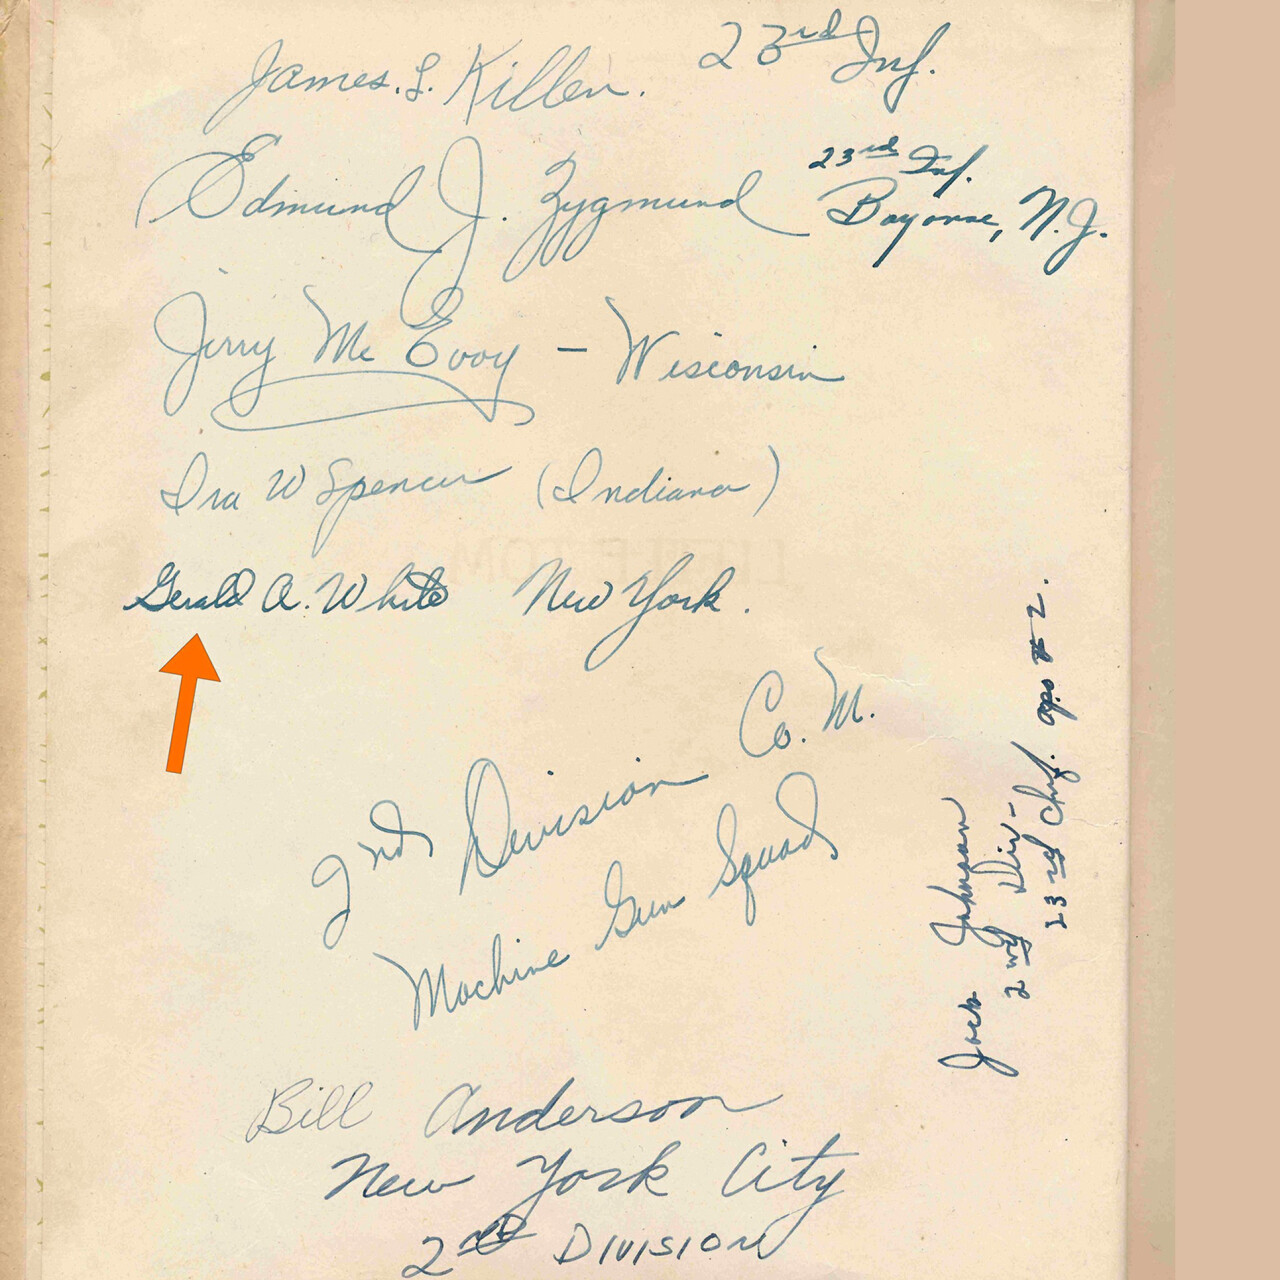 James. L. Killen. 23rd Inf.
Edmund J. Zygmund 23rd Inf.
Bayonne, N.J.
Jerry Mc Evoy - Wisconsin
Ira W Spencer (Indiana)
Gerald A. White New York.
2nd Division Co. M.
Machine Gun Squad
Jack Johnson
2nd Div-
23rd Inf. apo # 2.
Bill Anderson
New York City
2nd DIVISION